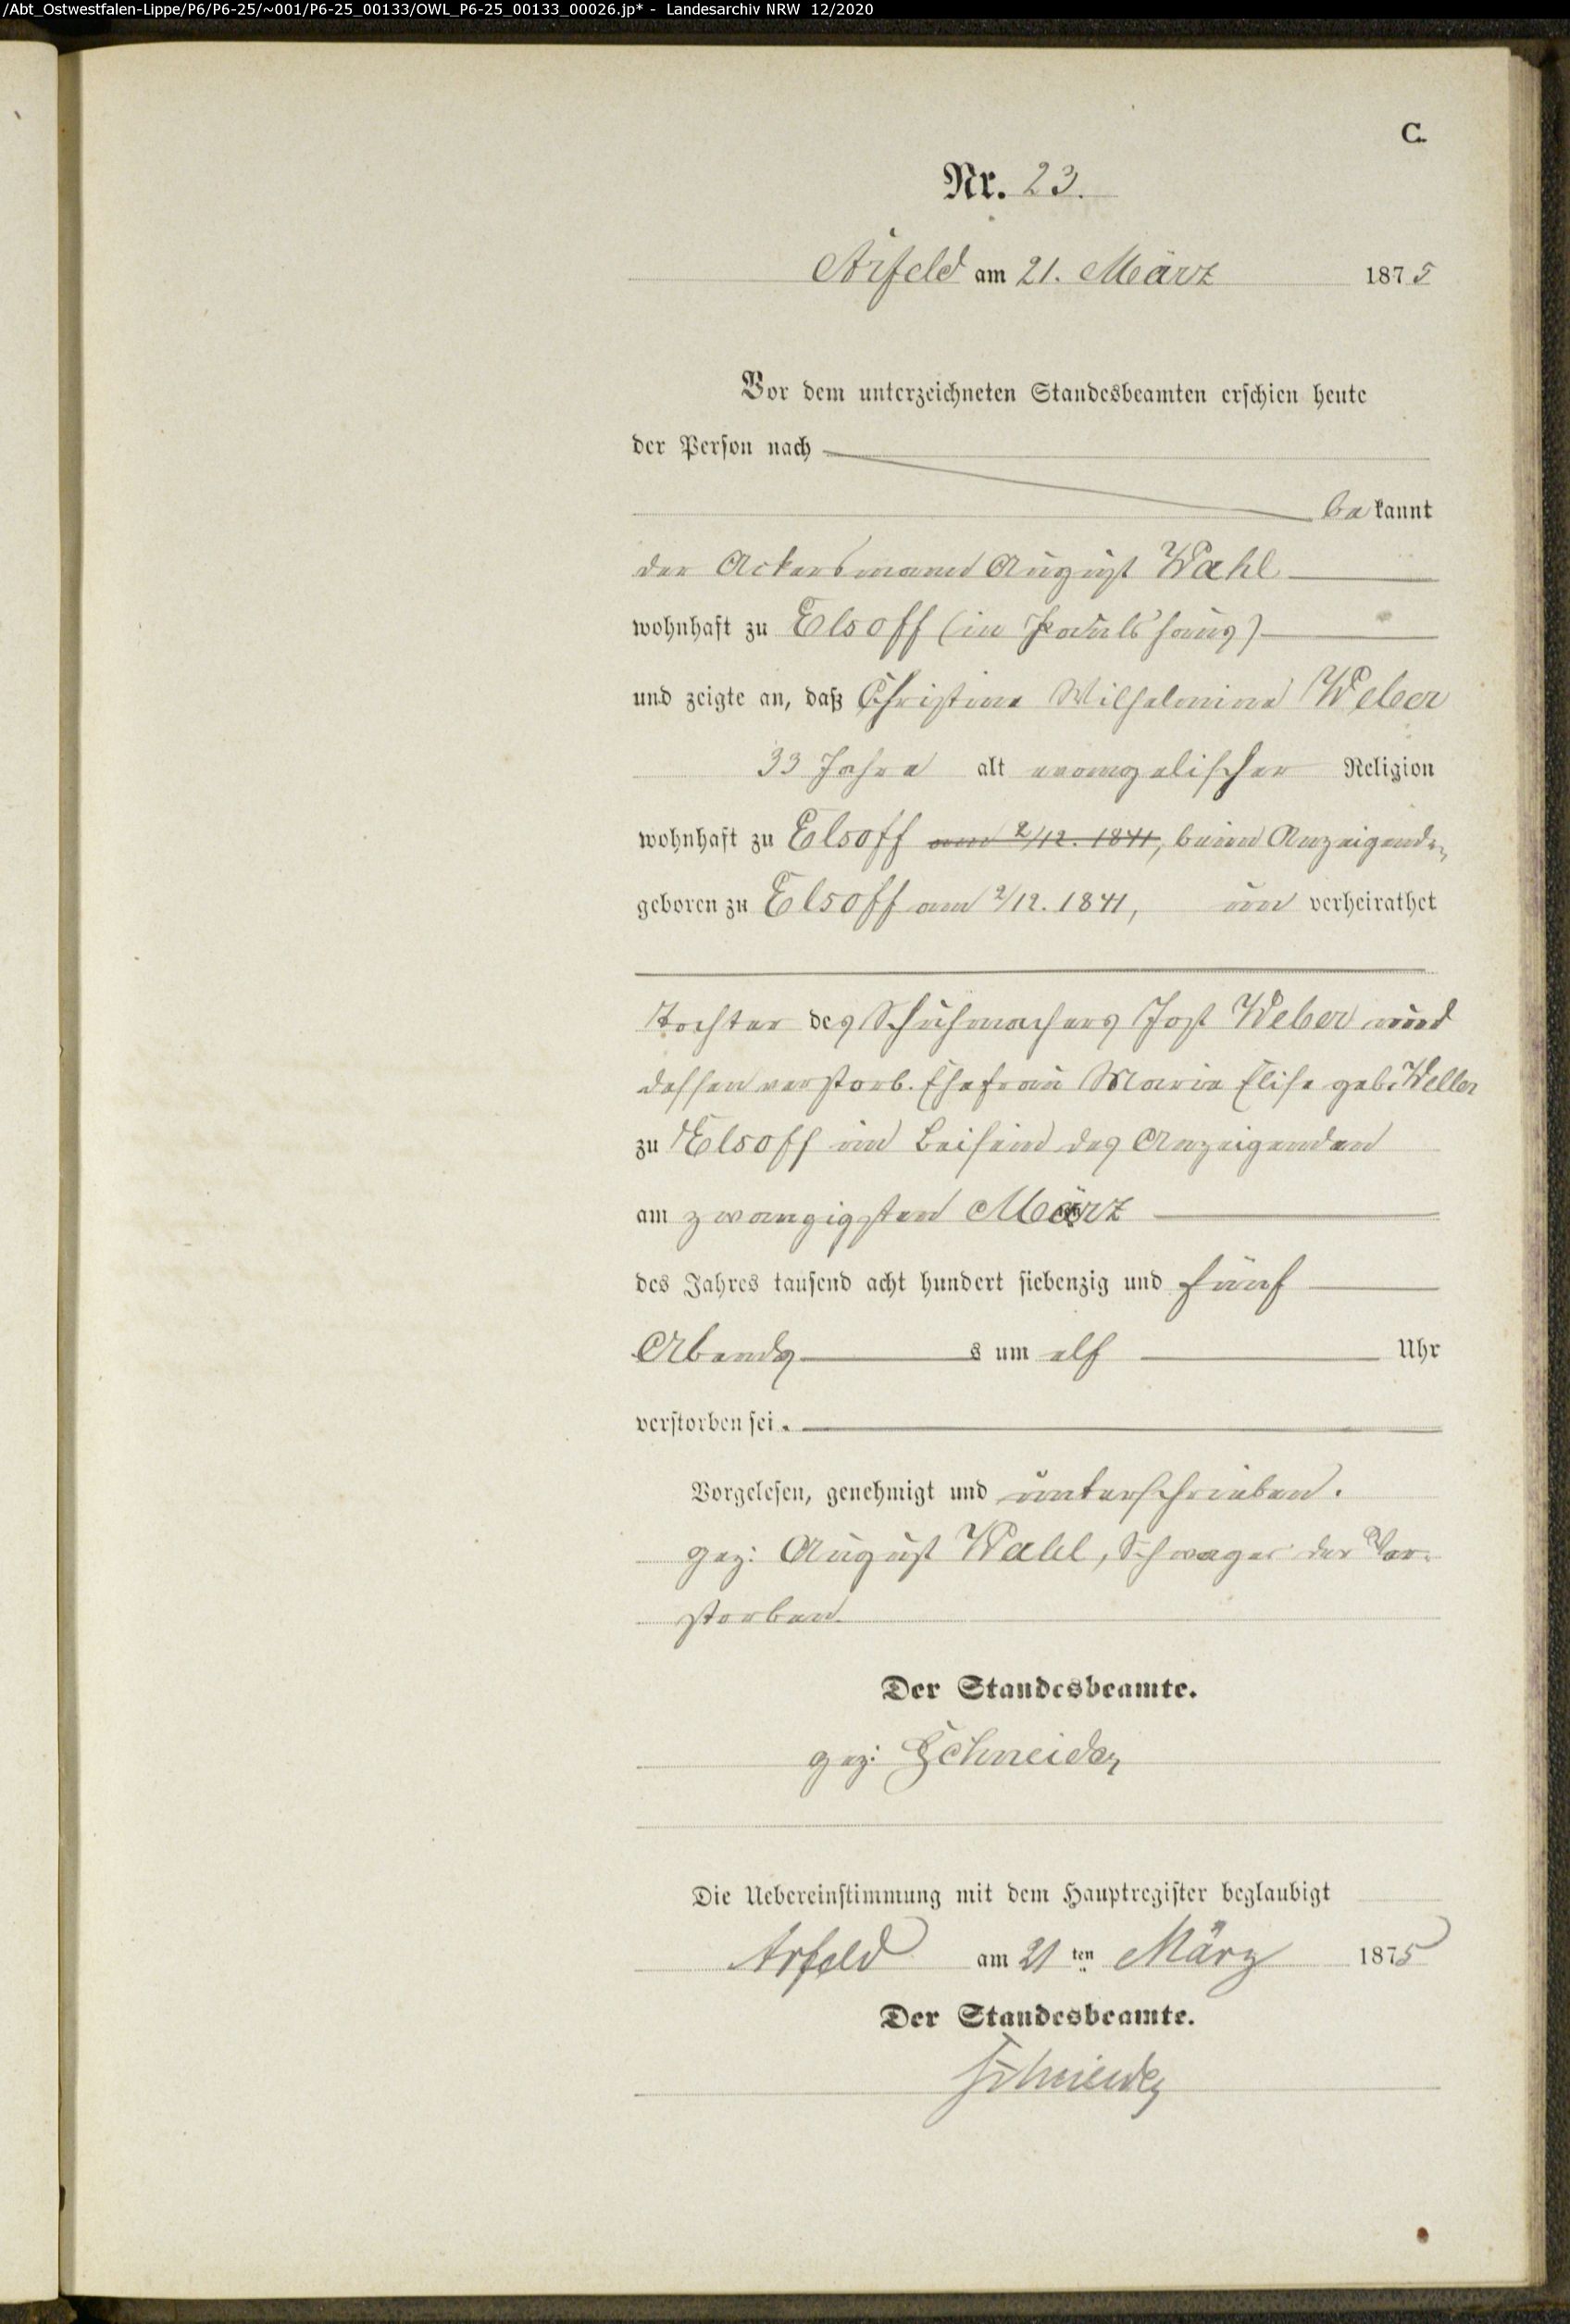 /Abt_Ostwestfalen-Lippe/P6/P6-25/~001/P6-25_00133/OWL_P6-25_00133_00026.jp* - Landesarchiv NRW 12/2020
C.
Nr. 23.
Arfeld am 21. März 1875
Vor dem unterzeichneten Standesbeamten erschien heute
der Person nach
bekannt
der Ackersmann August Wahl
wohnhaft zu Elsoff (in Pauls haus)
und zeigte an, daß Christine Wilhelmine Weber
33 Jahre alt evangelischer Religion
wohnhaft zu Elsoff am 2/12. 1841, beim Anzeigenden
geboren zu Elsoff am 2/12. 1841, unverheirathet
Tochter des Schuhmachers Jost Weber und
dessen verstorb. Ehefrau Marie Elise geb. Weller
zu Elsoff im Beisein des Anzeigenden
am zwanzigsten März
des Jahres tausend acht hundert siebenzig und fünf
Abends s um elf Uhr
verstorben sei.
Vorgelesen, genehmigt und unterschrieben.
gez: August Wahl, Schwager der Ver-
storben.
Der Standesbeamte.
gez: Schneider
Die Uebereinstimmung mit dem Hauptregister beglaubigt
Arfeld am 21ten März 1875
Der Standesbeamte.
Schneider